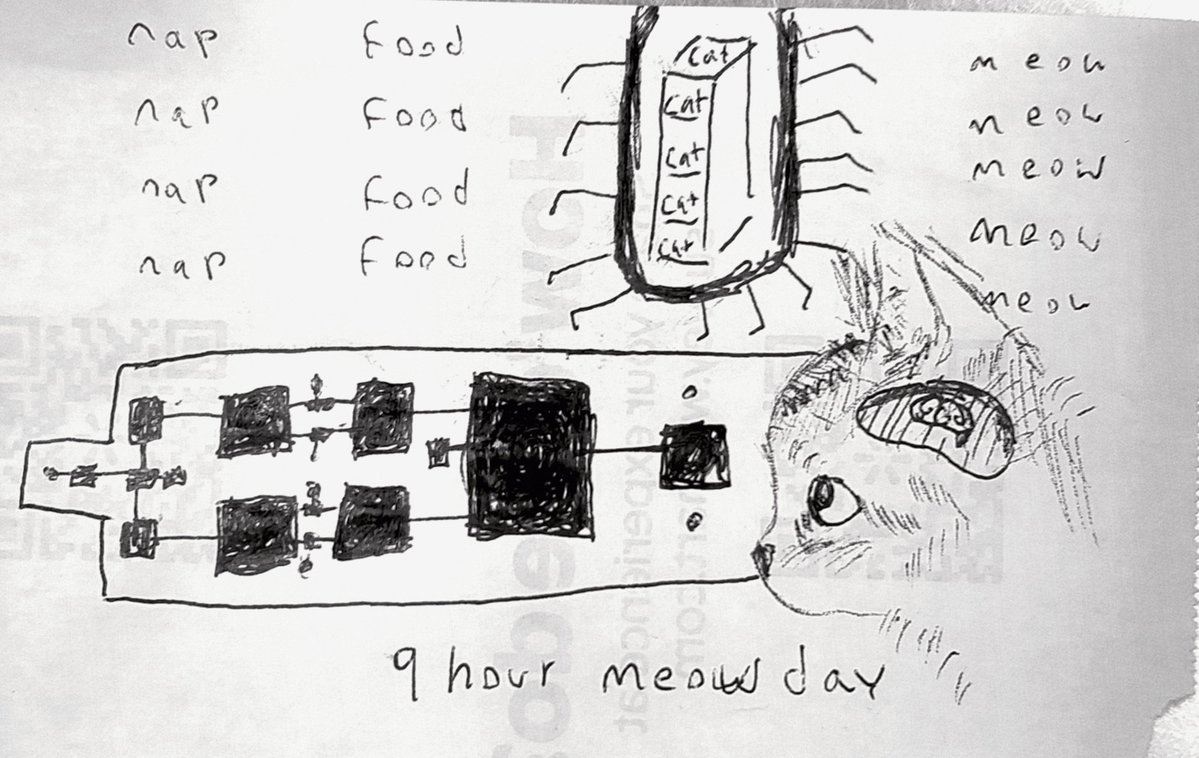 nap
nap
nap
nap
food
food
food
food
cat
cat
cat
cat
cat
meow
meow
meow
meow
meow
9 hour meow day
How
your experience at